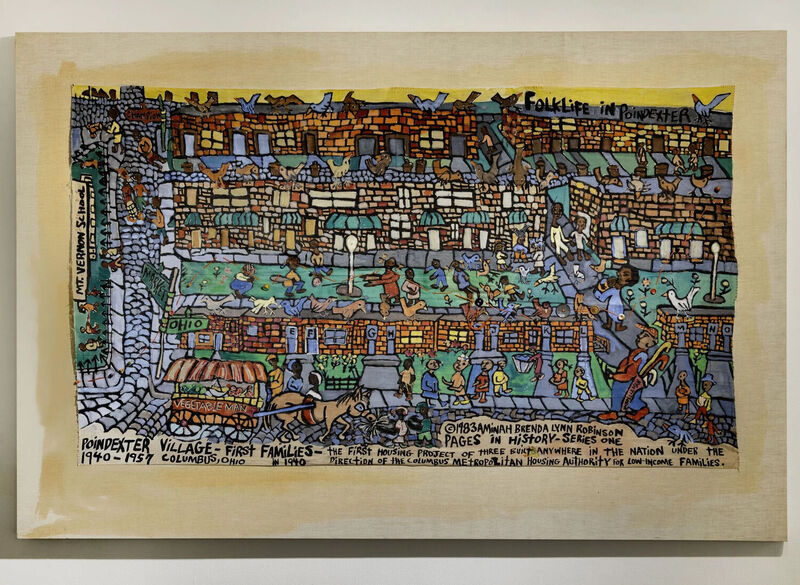 FOLKLIFE IN POINDEXTER
MT. VERNON SCHOOL
OHIO
VEGETABLE MAN
©1983 AMINAH BRENDA LYNN ROBINSON
PAGES IN HISTORY-SERIES ONE
POINDEXTER VILLAGE - FIRST FAMILIES - THE FIRST HOUSING PROJECT OF THREE BUILT ANYWHERE IN THE NATION UNDER THE
1940-1957 COLUMBUS, OHIO IN 1940 DIRECTION OF THE COLUMBUS METROPOLITAN HOUSING AUTHORITY FOR LOW-INCOME FAMILIES.